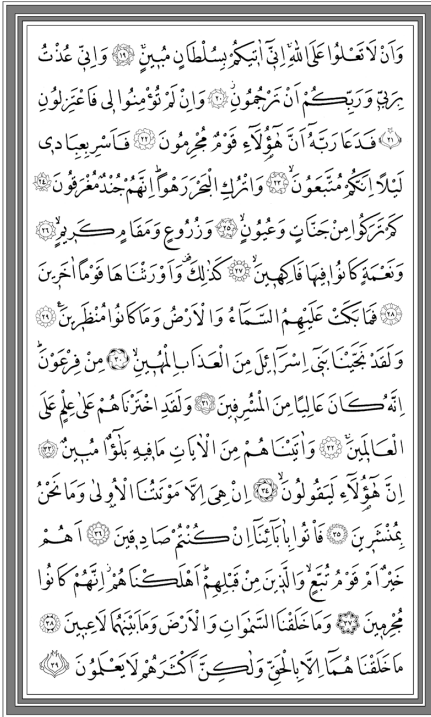 وَاَنْ لَا تَعْلُوا عَلَى اللّٰهِۚ اِنّ۪ٓي اٰت۪يكُمْ بِسُلْطَانٍ مُب۪ينٍۚ ﴿١٩﴾ وَاِنّ۪ي عُذْتُ
بِرَبّ۪ي وَرَبِّكُمْ اَنْ تَرْجُمُونِۘ ﴿٢٠﴾ وَاِنْ لَمْ تُؤْمِنُوا ل۪ي فَاعْتَزِلُونِ
﴿٢١﴾ فَدَعَا رَبَّهُٓ اَنَّ هٰٓؤُ۬لَٓاءِ قَوْمٌ مُجْرِمُونَ ﴿٢٢﴾ فَاَسْرِ بِعِبَاد۪ي
لَيْلًا اِنَّكُمْ مُتَّبَعُونَۙ ﴿٢٣﴾ وَاتْرُكِ الْبَحْرَ رَهْوًاۜ اِنَّهُمْ جُنْدٌ مُغْرَقُونَ ﴿٢٤﴾
كَمْ تَرَكُوا مِنْ جَنَّاتٍ وَعُيُونٍۙ ﴿٢٥﴾ وَزُرُوعٍ وَمَقَامٍ كَر۪يمٍۙ ﴿٢٦﴾
وَنَعْمَةٍ كَانُوا ف۪يهَا فَاكِه۪ينَۙ ﴿٢٧﴾ كَذٰلِكَ۠ وَاَوْرَثْنَاهَا قَوْمًا اٰخَر۪ينَ
﴿٢٨﴾ فَمَا بَكَتْ عَلَيْهِمُ السَّمَٓاءُ وَالْاَرْضُ وَمَا كَانُوا مُنْظَر۪ينَ۟ ﴿٢٩﴾
وَلَقَدْ نَجَّيْنَا بَن۪ٓي اِسْرَٓائ۪لَ مِنَ الْعَذَابِ الْمُه۪ينِۙ ﴿٣٠﴾ مِنْ فِرْعَوْنَۜ
اِنَّهُ كَانَ عَالِيًا مِنَ الْمُسْرِف۪ينَ ﴿٣١﴾ وَلَقَدِ اخْتَرْنَاهُمْ عَلٰى عِلْمٍ عَلَى
الْعَالَم۪ينَۚ ﴿٣٢﴾ وَاٰتَيْنَاهُمْ مِنَ الْاٰيَاتِ مَا ف۪يهِ بَلٰٓؤٌ۬ا مُب۪ينٌ ﴿٣٣﴾
اِنَّ هٰٓؤُ۬لَٓاءِ لَيَقُولُونَۙ ﴿٣٤﴾ اِنْ هِيَ اِلَّا مَوْتَتُنَا الْاُو۫لٰى وَمَا نَحْنُ
بِمُنْشَر۪ينَ ﴿٣٥﴾ فَأْتُوا بِاٰبَٓائِنَٓا اِنْ كُنْتُمْ صَادِق۪ينَ ﴿٣٦﴾ اَهُمْ
خَيْرٌ اَمْ قَوْمُ تُبَّعٍۙ وَالَّذ۪ينَ مِنْ قَبْلِهِمْۜ اَهْلَكْنَاهُمْۘ اِنَّهُمْ كَانُوا
مُجْرِم۪ينَ ﴿٣٧﴾ وَمَا خَلَقْنَا السَّمٰوَاتِ وَالْاَرْضَ وَمَا بَيْنَهُمَا لَاعِب۪ينَ ﴿٣٨﴾
مَا خَلَقْنَاهُمَٓا اِلَّا بِالْحَقِّ وَلٰكِنَّ اَكْثَرَهُمْ لَا يَعْلَمُونَ ﴿٣٩﴾